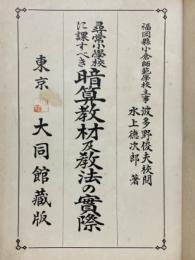 福岡縣小倉師範學校主事 波多野俊夫校閲
水上德次郎 著
尋常小學校に課すべき
暗算敎材及敎法の實際
東京 大同館藏版